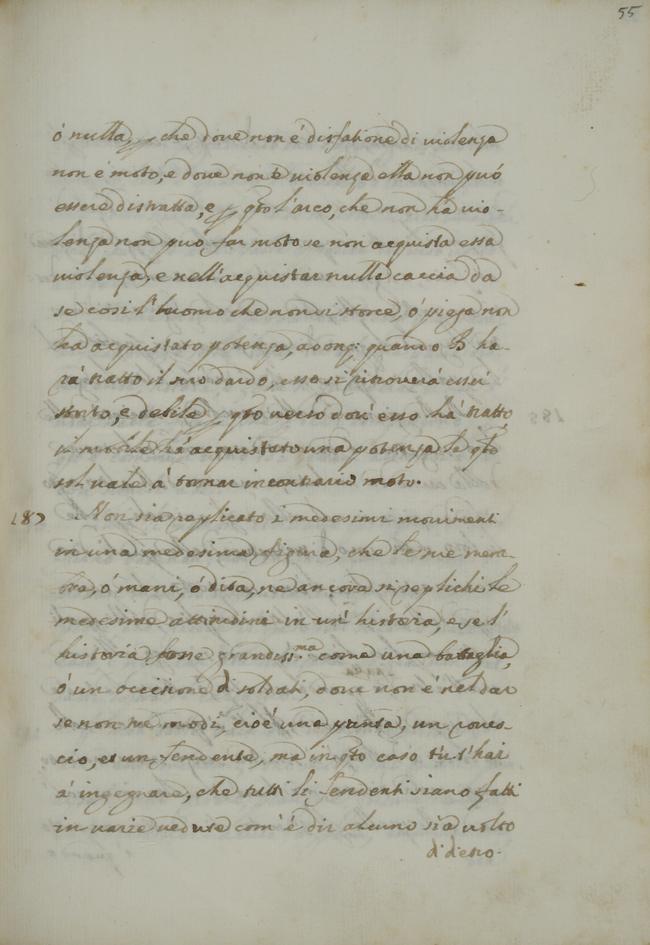 55
ó nulla, p che dove non é disfatione di violenza
non é moto, e dove non é violenza ella non può
essere distratta, e p qto l'arco, che non ha vio-
lenza non può far moto se non acquista essa
violenza, e nell'acquistar nulla caccia da
se cosi l'huomo che non si storce, ó piega non
ha acquistato potenza, adonq; quando B ha-
rá tratto il suo dardo, esso si ritroverá esser
storto, e debile p qto verso dov' esso há tratto
il mobile há acquistato una potenza la qto
sol vale á tornar in contrario moto.
187 Non sia replicato i medesimi movimenti
in una medesima figura, che le sue mem-
bra, ó mani, ó dita, ne ancora si replichi le
medesime attitudini in un' historia, e se l'
historia fosse grandiss.ma come una battaglia,
ó un occisione di soldati, dove non é nel dar
se non tre modi, cioé una punta, un rove-
scio, et un fendente, ma in qto caso tu t'hai
á ingegnare, che tutti li fendenti siano fatti
in varie vedute com' é dir alcuno sia volto
di dietro.